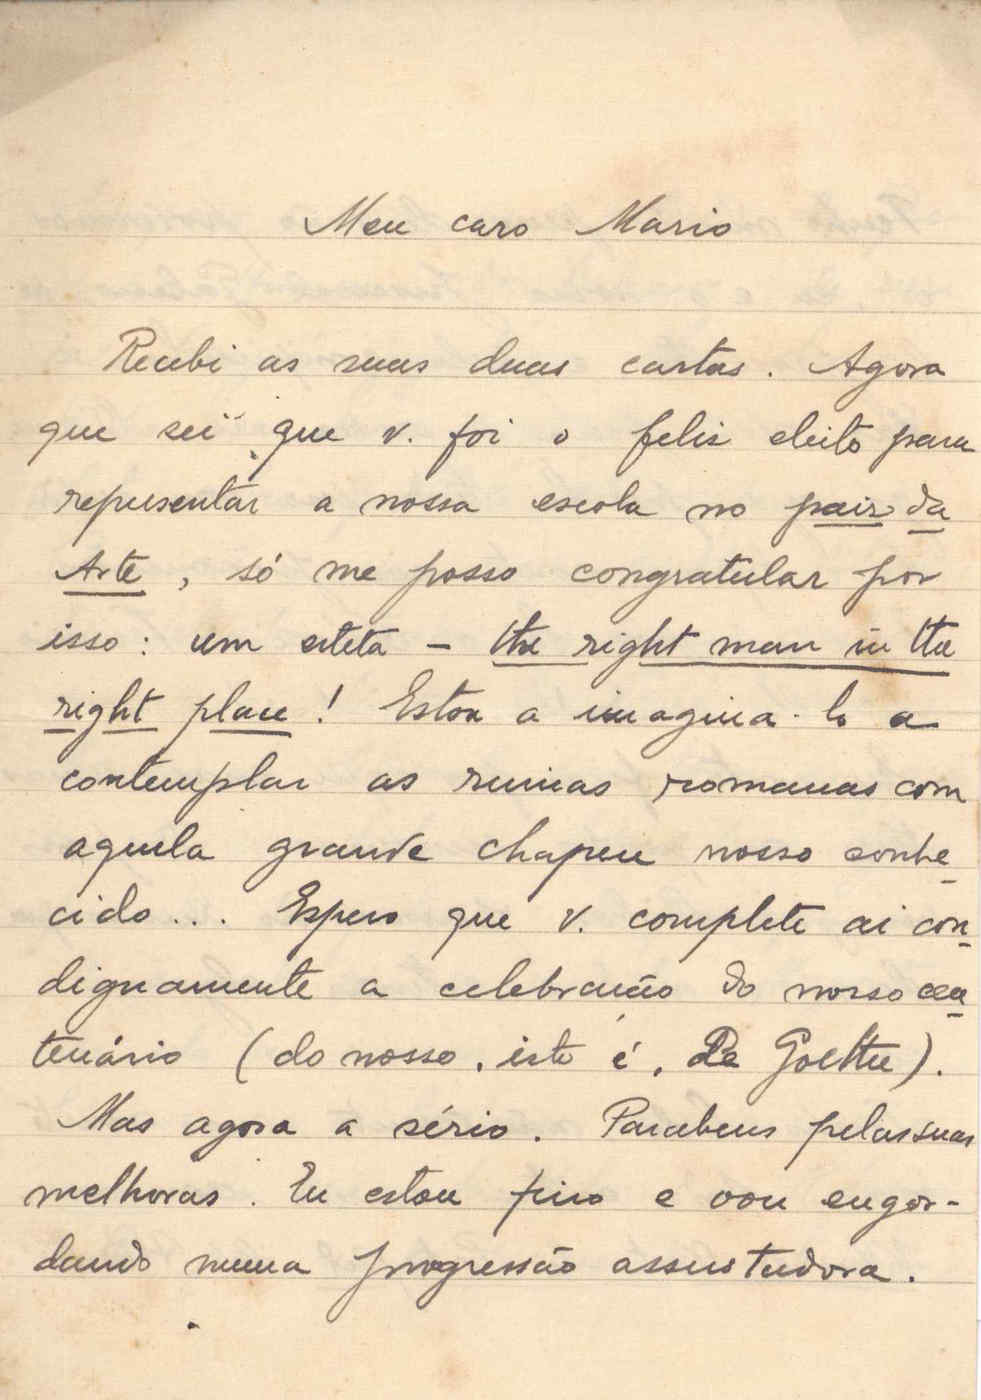 Meu caro Mario
Recebi as suas duas cartas. Agora
que sei que v. foi o felis eleito para
representar a nossa escola no pais da
Arte, só me posso congratular por
isso: um esteta – the right man in the
right place! Estou a imagina-lo a
contemplar as ruinas romanas com
aquela grande chapeu nosso conhe-
cido... Espero que v. complete ai con-
dignamente a celebração do nosso cen-
tenário (do nosso, isto é, de Goethe).
Mas agora a sério. Parabens pelas suas
melhoras. Eu estou fino e vou engor-
dando numa progressão assustadora.